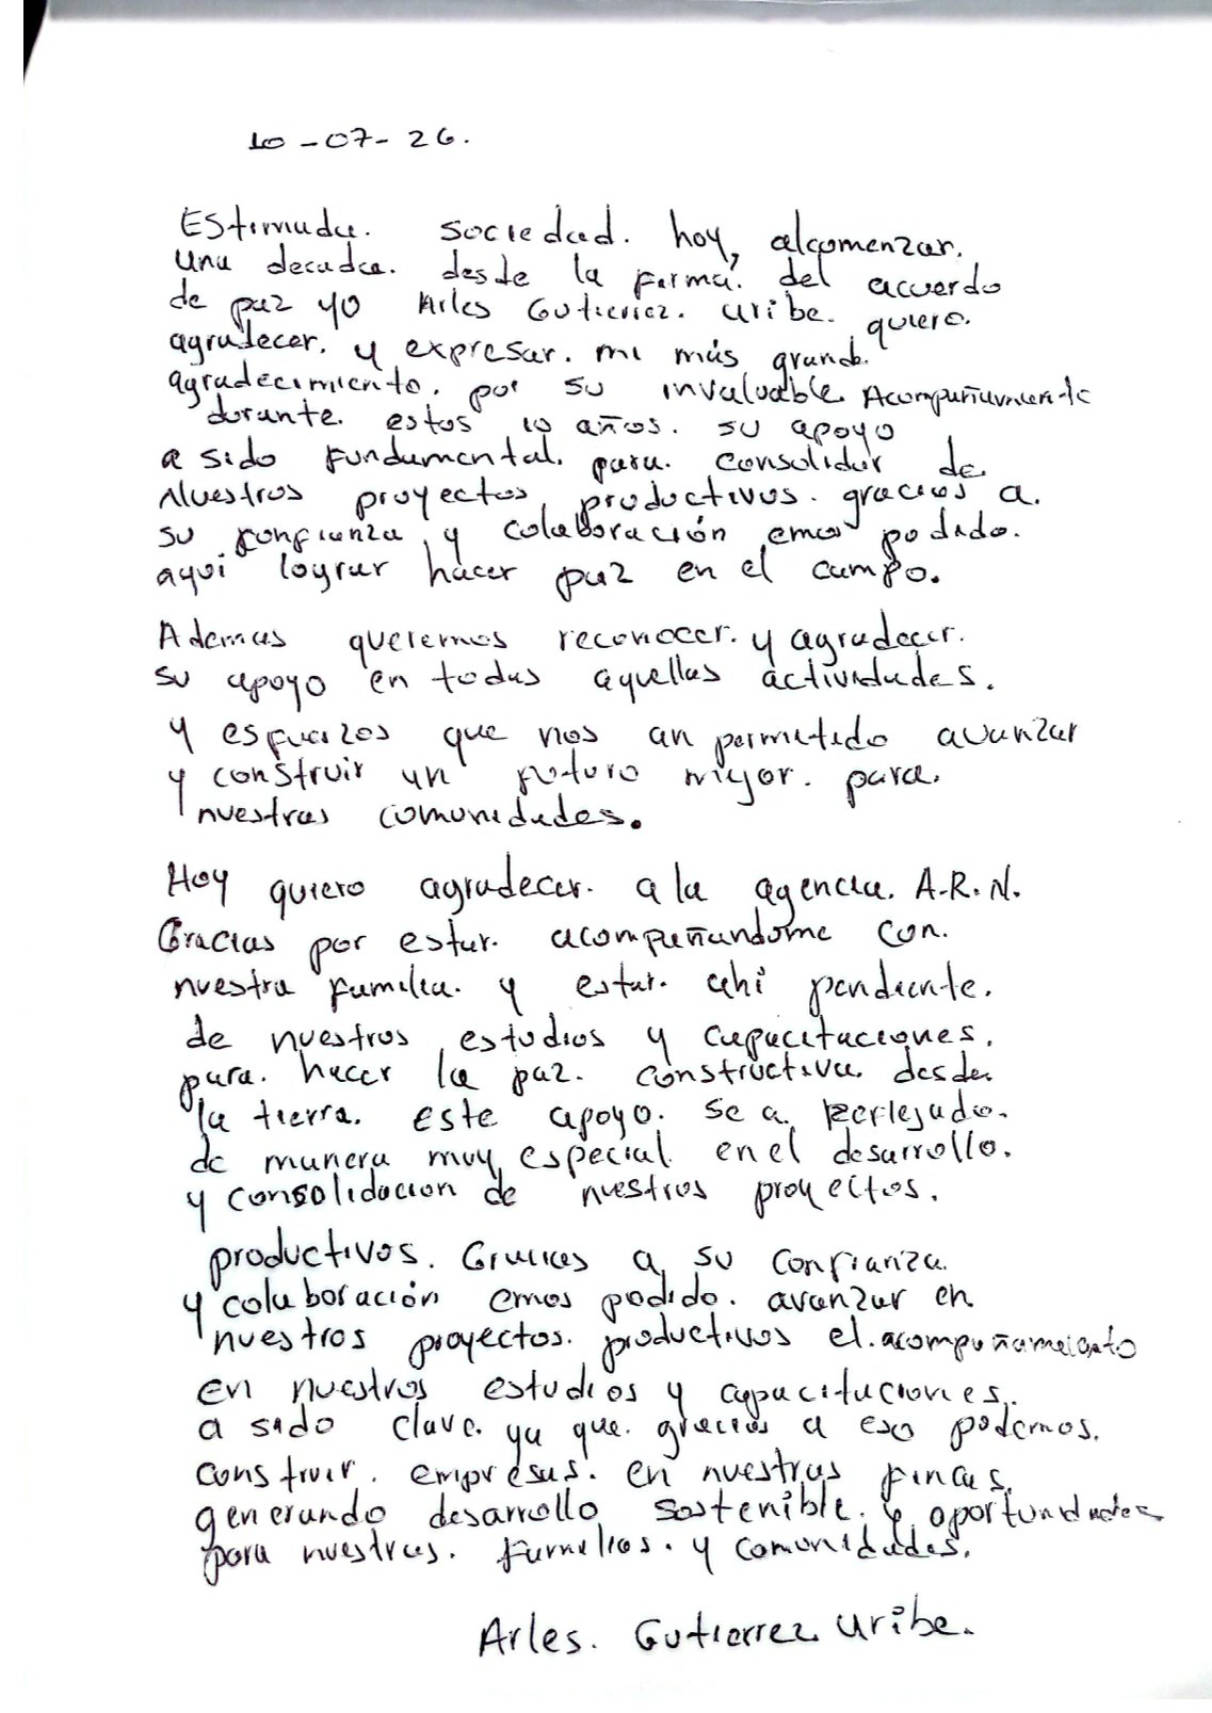 10-07-26.
Estimada. sociedad. hoy, alcomenzar.
una decada. desde la firma. del acuerdo
de paz yo Arles Gutierrez. uribe. quiero.
agradecer. y expresar. mi más grande.
agradecimiento. por su invaluable Acompañamiento
durante. estos 10 años. su apoyo
a sido fundamental. para. consolidar de
Nuestros proyectos productivos. gracias a.
su confianza y colaboración emos podido.
aqui lograr hacer paz en el campo.
Ademas queremos reconocer. y agradecer.
su apoyo en todas aquellas actividades.
y esfuerzos que nos an permitido avanzar
y construir un futuro mejor. para.
nuestras comunidades.
Hoy quiero agradecer. a la agencia. A.R.N.
Gracias por estar. acompañandome con.
nuestra familia. y estar. ahi pendiente.
de nuestros estudios y capacitaciones.
para. hacer la paz. constructiva. desde.
la tierra. este apoyo. se a. reflejado.
de manera muy especial en el desarrollo.
y consolidacion de nuestros proyectos.
productivos. Gracias a su confianza.
y colaboración emos podido. avanzar en
nuestros proyectos. productivos el. acompañameiento
en nuestros estudios y capacitaciones.
a sido clave. ya que. gracias a eso podemos.
construir. empresas. en nuestras fincas.
generando desarrollo sostenible. y oportunidades
para nuestras. familias. y comunidades.
Arles. Gutierrez uribe.